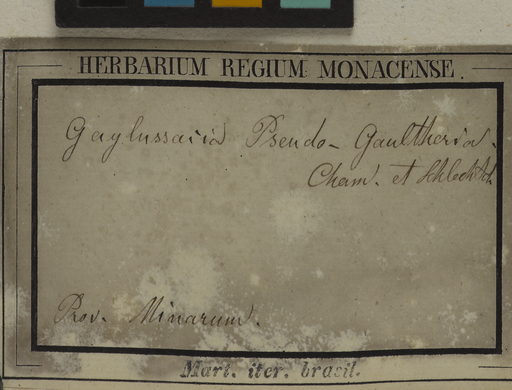 HERBARIUM REGIUM MONACENSE.
Gaylussacia Pseudo-Gaultheria.
Cham. et Schlechtd.
Prov. Minarum.
Mart. iter. brasil.